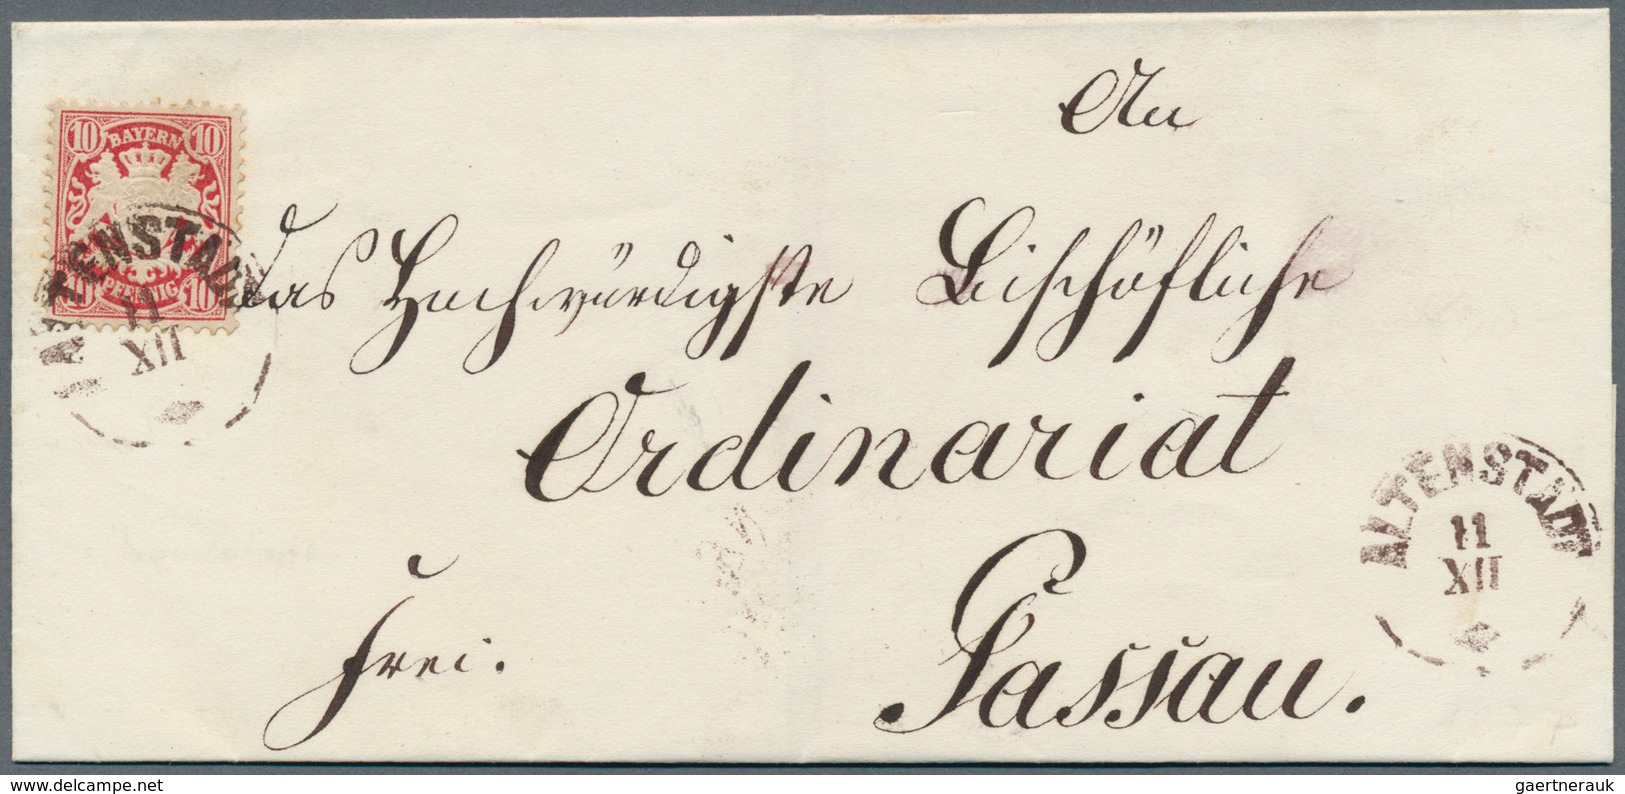 10 BAYERN 10
10 PFENNIG 10
ALTENSTADT
11
XII
An
das Hochwürdigste Bischöfliche
Ordinariat
Passau.
Frei.
ALTENSTADT
11
XII
www.delcampe.net
gaertnerauk